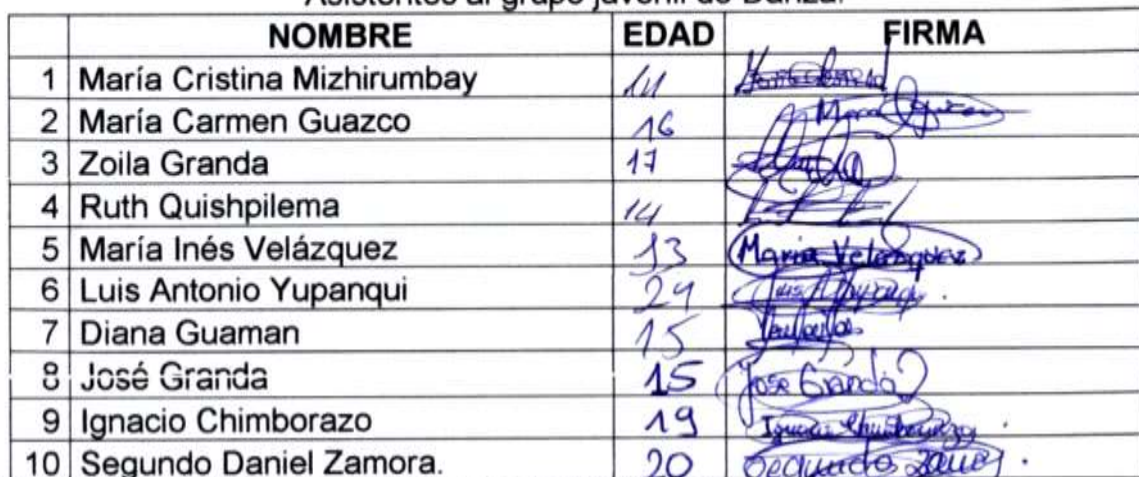 Asistentes al grupo juvenil de Danza.
NOMBRE EDAD FIRMA
1 María Cristina Mizhirumbay
2 María Carmen Guazco 16
3 Zoila Granda 17
4 Ruth Quishpilema 14
5 María Inés Velázquez 13 Maria Velazquez
6 Luis Antonio Yupanqui 24
7 Diana Guaman 15
8 José Granda 15 Jose Granda
9 Ignacio Chimborazo 19 Ignacio Chimborazo
10 Segundo Daniel Zamora. 20 Segundo